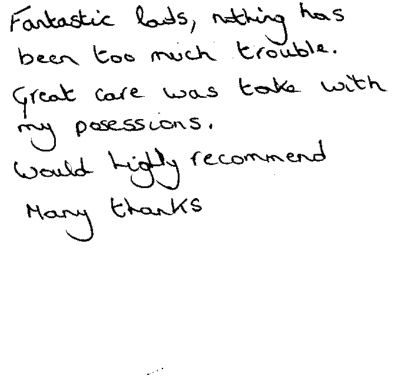 Fantastic lads, nothing has
been too much trouble.
Great care was take with
my posessions.
Would highly recommend
Many thanks